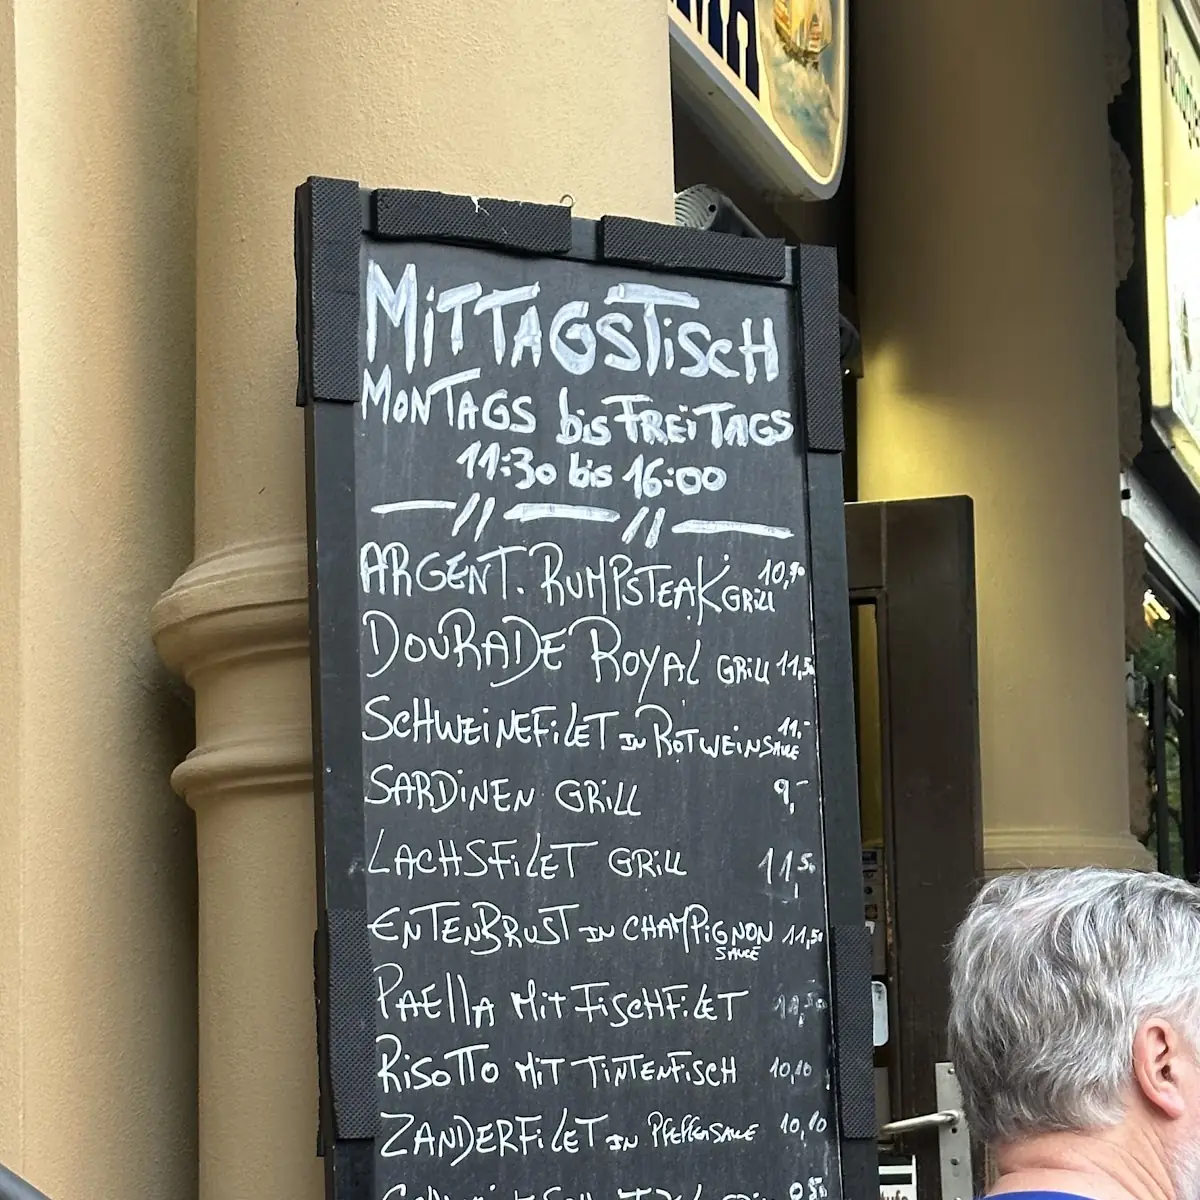 MITTAGSTISCH
MONTAGS bis FREITAGS
11:30 bis 16:00
ARGENT. RUMPSTEAK GRILL 10,90
DOURADE ROYAL GRILL 11,50
SCHWEINEFILET IN ROTWEINSAUCE 11,-
SARDINEN GRILL 9,-
LACHSFILET GRILL 11,50
ENTENBRUST IN CHAMPIGNON 11,50
SAUCE
PAELLA MIT FISCHFILET
RISOTTO MIT TINTENFISCH 10,10
ZANDERFILET IN PFEFFERSAUCE 10,10